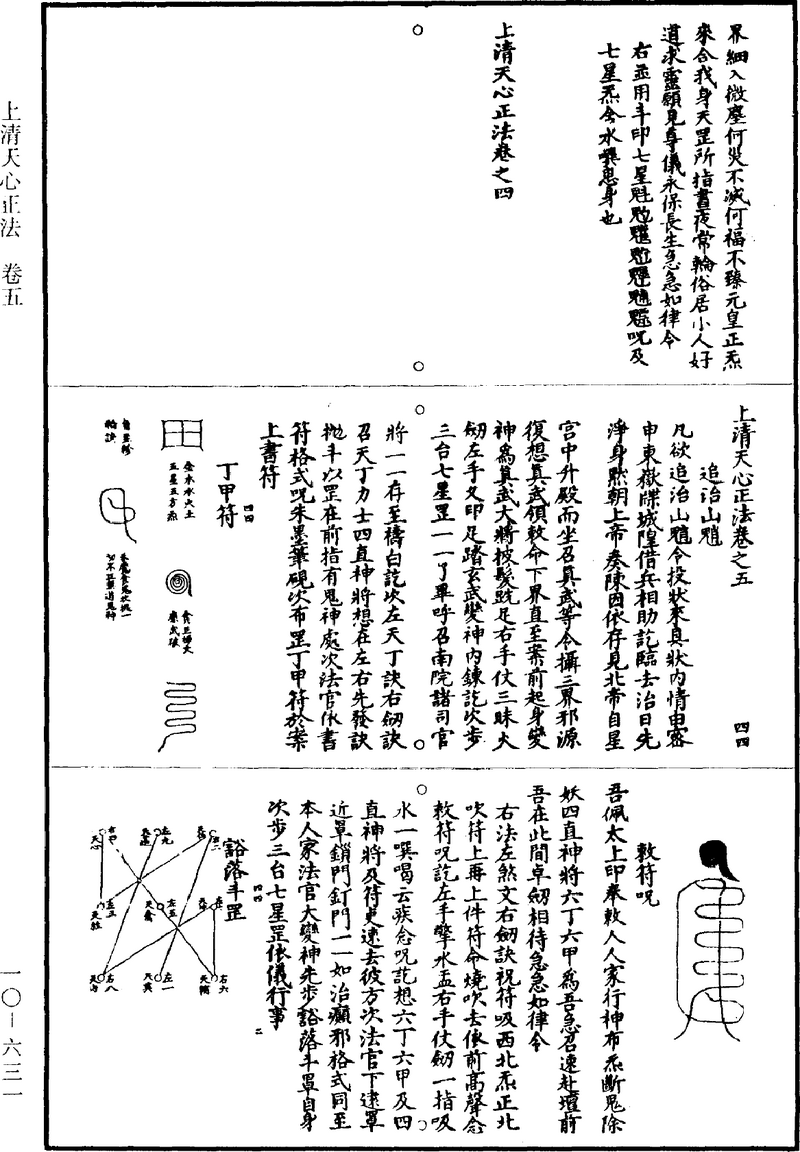 界細入微塵何災不滅何福不臻元皇正炁
來合我身天罡所指晝夜常輪俗居小人好
道求靈願見尊儀永保長生急急如律令
右並用斗印七星魁𩲃䰢𩳐魓䰡魒呪及
七星炁含水噀患身也
上清天心正法卷之四
上清天心正法卷之五
四四
追治山魈
凡欲追治山魈令投狀來具狀內情由密
申東嶽牒城隍借兵相助訖臨去治日先
淨身黙朝上帝奏陳因依存見北帝自星
宮中升殿而坐召真武等令攝三界邪源
復想真武領敕命下界直至案前起身變
神為真武大將披髮跣足右手仗三昧火
劒左手叉印足踏玄武變神內鍊訖次步
三台七星罡一一了畢呼召南院諸司官
將一一存至禱白訖次左天丁訣右劒訣
召天丁力士四直神將想在左右先發訣
抛斗以罡在前指有鬼神處次法官依書
符格式呪朱墨筆硯次布罡丁甲符於案
上書符
丁甲符
四四
金木水火土
五星五方炁
敕符呪
吾佩太上印奉敕人人家行神布炁斷鬼除
妖四直神將六丁六甲為吾急召速赴壇前
吾在此間卓劒相待急急如律令
右法左煞文右劒訣祝符吸西北炁正北
吹符上再上件符命燒吹去依前高聲念
敕符呪訖左手擎水盂右手仗劒一指吸
水一噀喝云疾念呪訖想六丁六甲及四
直神將及符吏速去彼方次法官下逮罩
近罩鎖門釘門一一如治癲邪格式同至
本人家法官大變神先步豁落斗罩自身
次步三台七星罡依儀行事
二
豁落斗罡
四四
天心
左九
右二
左三
天禽
左五
右八
左一
天輔
右六
上清天心正法　卷五
一〇－六三一